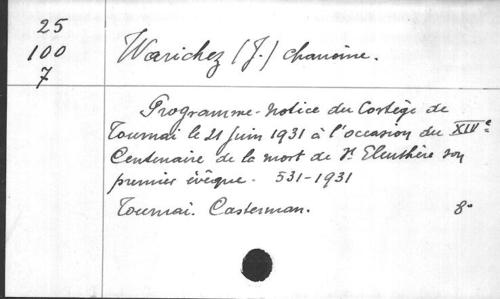 25
100
7
Warichez (J.) chanoine.
Programme-notice du Cortège de
Tournai le 21 juin 1931 à l'occasion du XIVe
Centenaire de la mort de St Eleuthère son
premier évêque. 531-1931
Tournai. Casterman. 8°